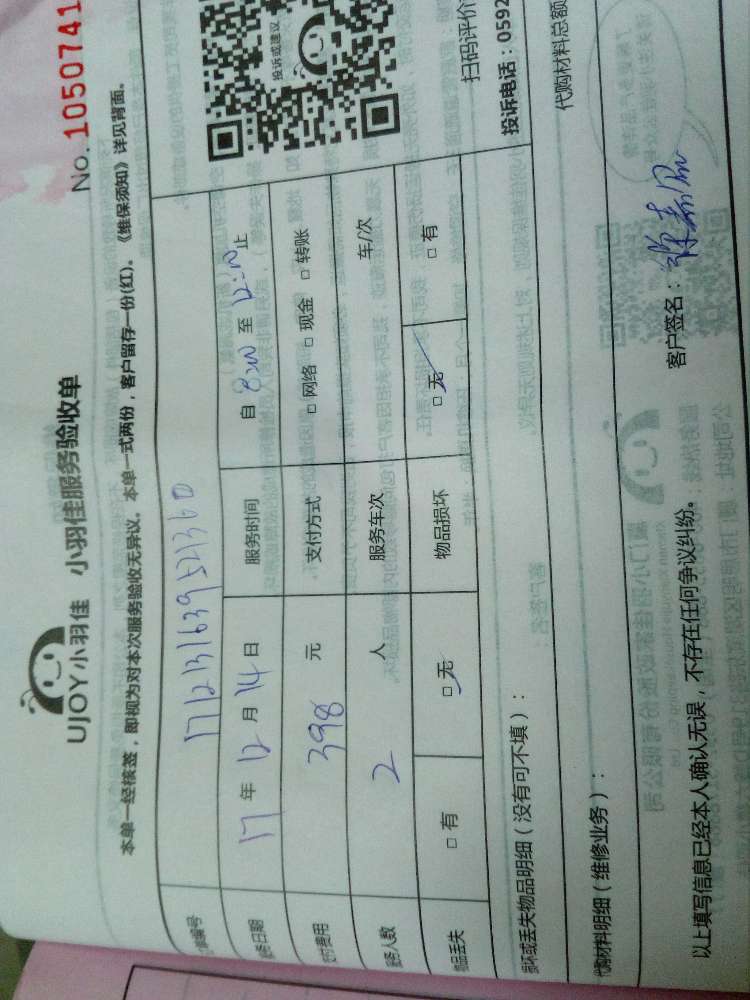 UJOY小羽佳 小羽佳服务验收单
No. 1050741
本单一经核签，即视为对本次服务验收无异议。本单一式两份，客户留存一份(红)。《维保须知》详见背面。
编号 1712131639521360
日期 17 年 12 月 14 日 服务时间 自 8:00 至 12:00 止
费用 398 元 支付方式 □ 网络 □ 现金 □ 转账
人数 2 人 服务车次 车/次
物品丢失 □ 有 □ 无 物品损坏 □ 无 □ 有
投诉或建议
扫码评价
投诉电话：0592
损坏或丢失物品明细（没有可不填）：
代购材料明细（维修业务）：
代购材料总额
以上填写信息已经本人确认无误，不存在任何争议纠纷。
客户签名：